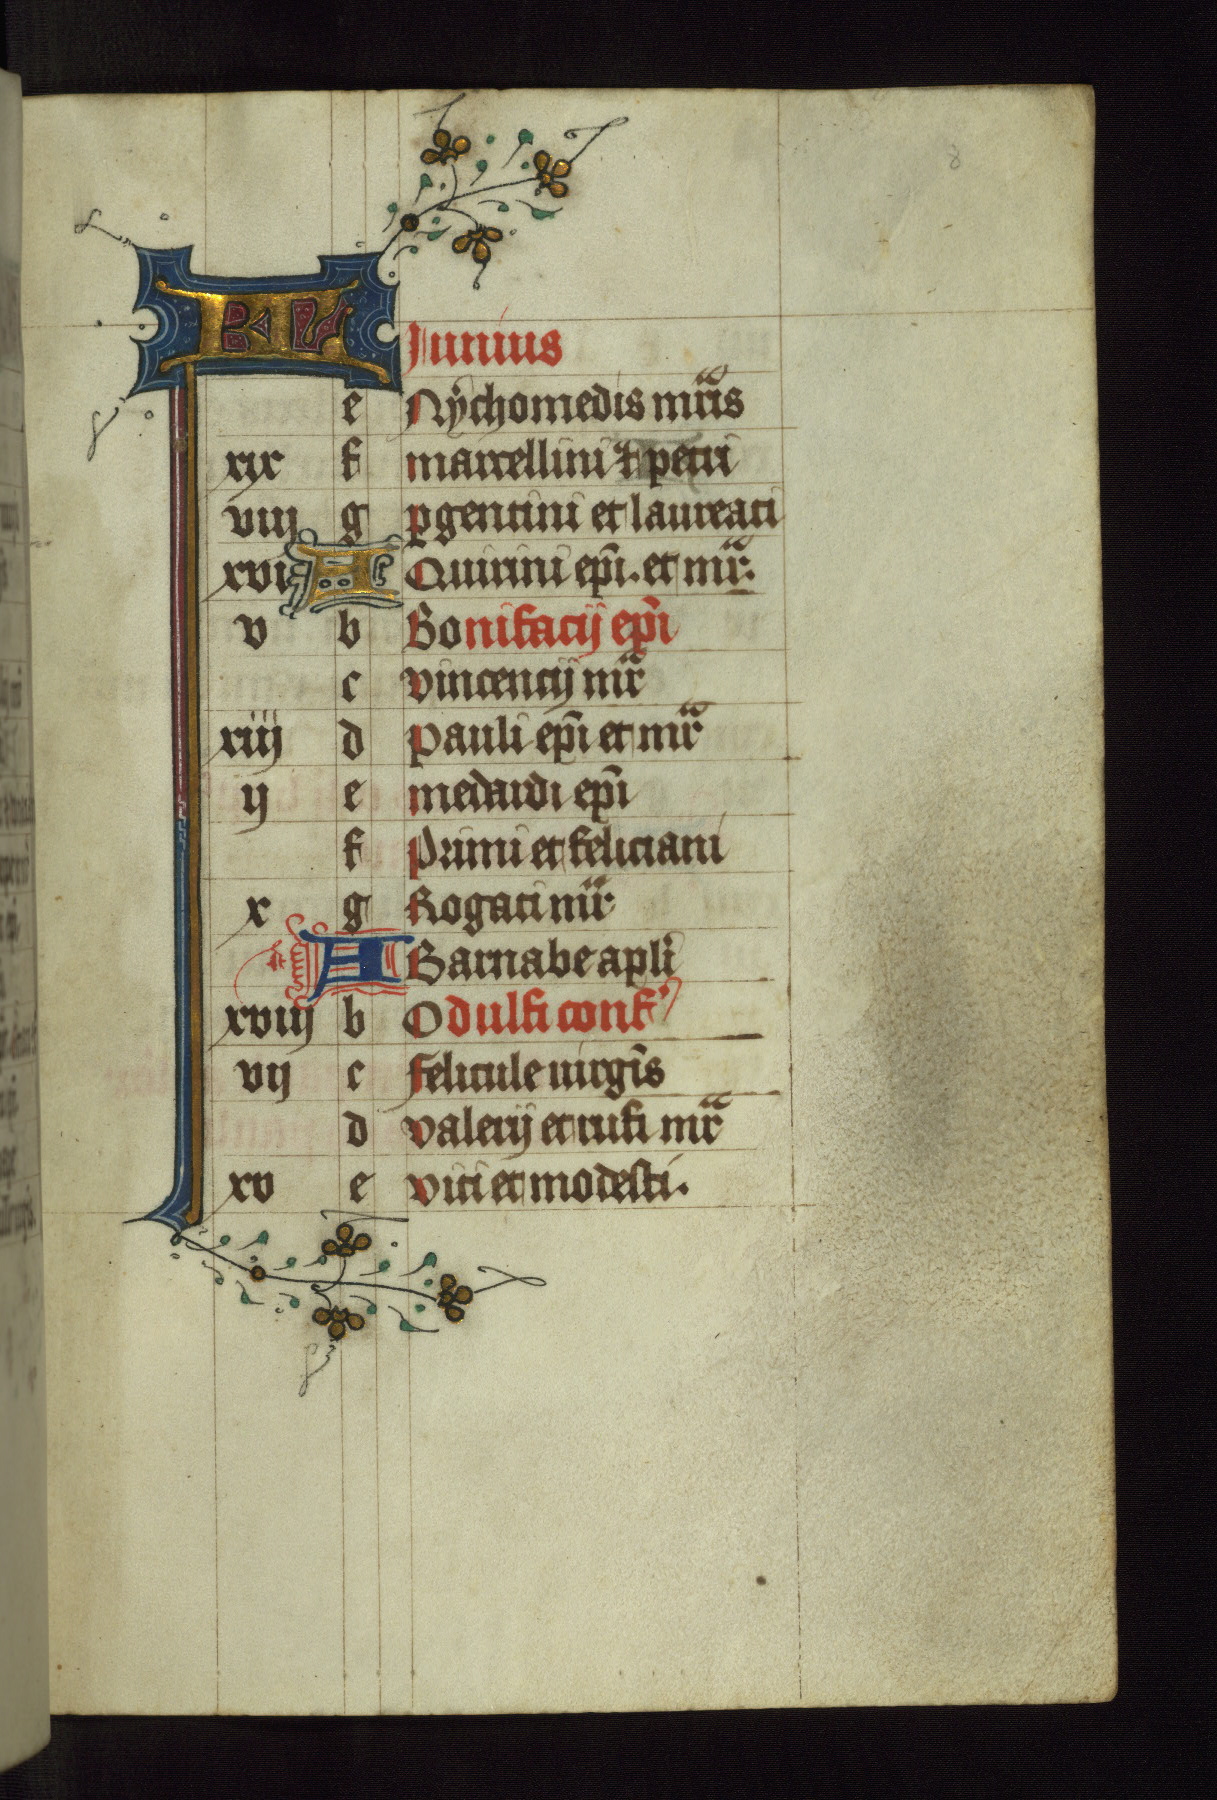 8
KL Junius
e Nychomedis mr̄is
xix f marcellini et petri
viij g pgentini et laureati
xvi A Quirini ep̄i. et mr̄.
v b Bonifacij ep̄i
c vincencij mr̄
xiij d pauli ep̄i et mr̄
ij e medardi ep̄i
f Primi et feliciani
x g Rogati mr̄
A Barnabe apl̄i
xviij b Odulfi conf'
vij c felicule uirgīs
d valerij et rufi mr̄
xv e viti et modesti.